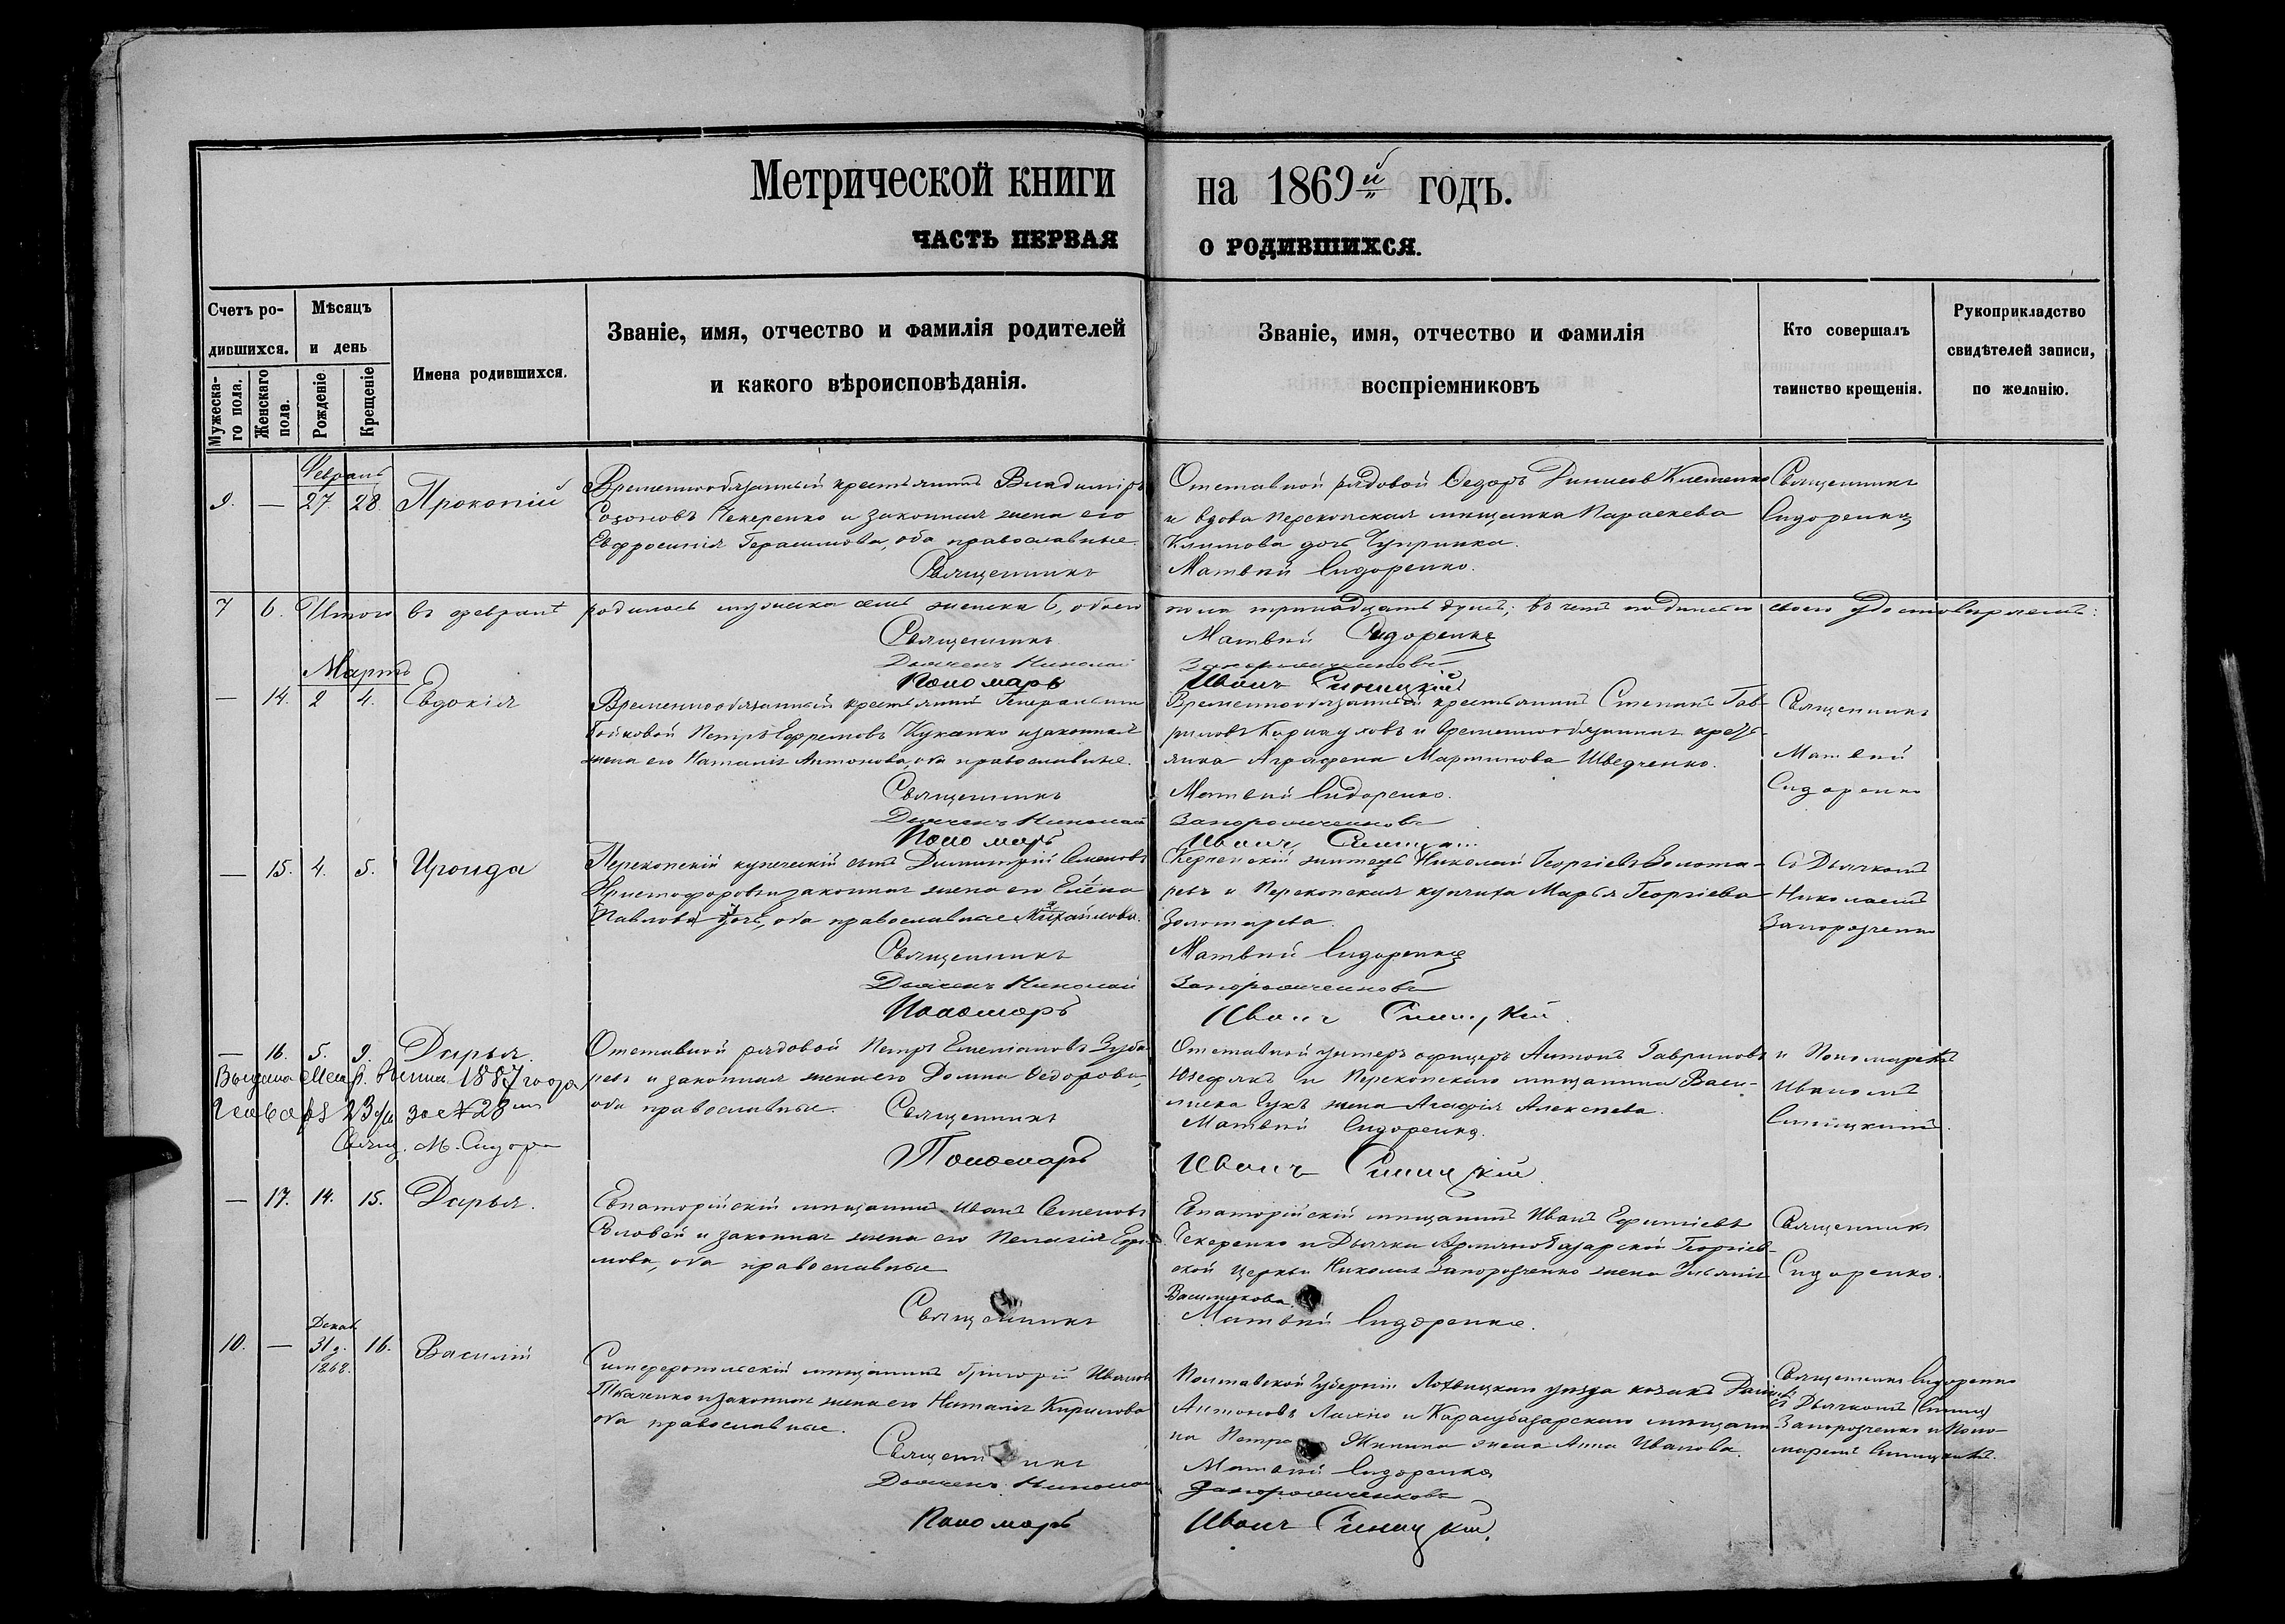 Метрической книги на 1869й годъ.
ЧАСТЬ ПЕРВАЯ О РОДИВШИХСЯ.
Счетъ ро-
дившихся.
Мужеска-
го пола.
Женскаго
пола.
Мѣсяцъ
и день
Рожденіе
Крещеніе
Имена родившихся.
Званіе, имя, отчество и фамилія родителей
и какого вѣроисповѣданія.
Званіе, имя, отчество и фамилія
воспріемниковъ
Кто совершалъ
таинство крещенія.
Рукоприкладство
свидѣтелей записи,
по желанію.
Февраль
9. — 27. 28. Прокопій
Временнообязанный крестьянинъ Владиміръ
Созоновъ Чекеренко и законная жена его
Евфросинія Герасимова, оба православные.
Священникъ
Отставной рядовой Федоръ
и вдова Перекопская мѣщанка Параскева
Климова дочь Чупринка.
Матвѣй Сидоренко.
Священникъ
Сидоренко
7 6. Итого въ февралѣ родилось мужеска семь женска 6, обоего пола тринадцать душъ; въ чемъ подписью своею удостовѣряемъ:
Священникъ Матвѣй Сидоренко
Николай
Пономарь Иванъ Синицкій
Мартъ
— 14. 2 4. Евдокія
Временнообязанный крестьянинъ Генеральши
Бойковой Петръ Ефремовъ и законная
жена его Наталія Антонова, оба православные.
Священникъ
Николай
Пономарь
Временнообязанный крестьянинъ Степанъ Гав-
риловъ и временнообязанная крестья-
янка Аграфена Мартинова Шведченко.
Матвѣй Сидоренко.
Иванъ
Священникъ
Матвѣй
Сидоренко
— 15. 4. 5. Ираида
Перекопскій купеческій сынъ Димитрій Семеновъ
Христофоровъ и законная жена его Елена
Павлова дочь, оба православные Михайлова.
Священникъ
Николай
Пономарь
Керченскій житель Николай Георгіевъ Золота-
ревъ и Перекопская купчиха Марья Георгіева
Золотарева.
Матвѣй Сидоренко
Иванъ Синицкій.
Съ Дьячкомъ
Николаемъ
Запорозченко
— 16. 5. 9. Дарья.
Выдана 1887 года
28
Свящ. М. Сидоре
Отставной рядовой Петръ Емеліановъ Зуба-
ревъ и законная жена его Домна Федорова,
оба православные.
Священникъ
Пономарь
Отставной унтеръ офицеръ Антонъ Гавриловъ
и Перекопскаго мѣщанина Васи-
жена Агафія Алексѣева.
Матвѣй Сидоренко.
Иванъ Синицкій.
и Пономаремъ
Иваномъ
Синицкимъ.
— 17. 14. 15. Дарья.
Евпаторійскій мѣщанинъ Иванъ Семеновъ
Соловей и законная жена его Пелагія Ефи-
мова, оба православные
Священникъ
Евпаторійскій мѣщанинъ Иванъ Ефиміевъ
Чекеренко и Дьячка Армянобазарской Георгіев-
ской церкви Николая Запорозченко жена Ульянія
Василькова.
Матвѣй Сидоренко.
Священникъ
Сидоренко.
Декаб.
10. — 31 д. 16. Василій
1868.
Симферопольскій мѣщанинъ Григорій Ивановъ
Ткаченко и законная жена его Наталія Кирилова
оба православные.
Священникъ
Пономарь
Полтавской Губерніи Лохвицкаго уѣзда козакъ
Антоновъ и Карасубазарскаго мѣщани-
на Петра жена Анна Иванова.
Матвѣй Сидоренко
Иванъ Синицкій.
Священникъ Сидоренко
съ Дьячкомъ
Запорозченко и Поно-
маремъ Синицкимъ.